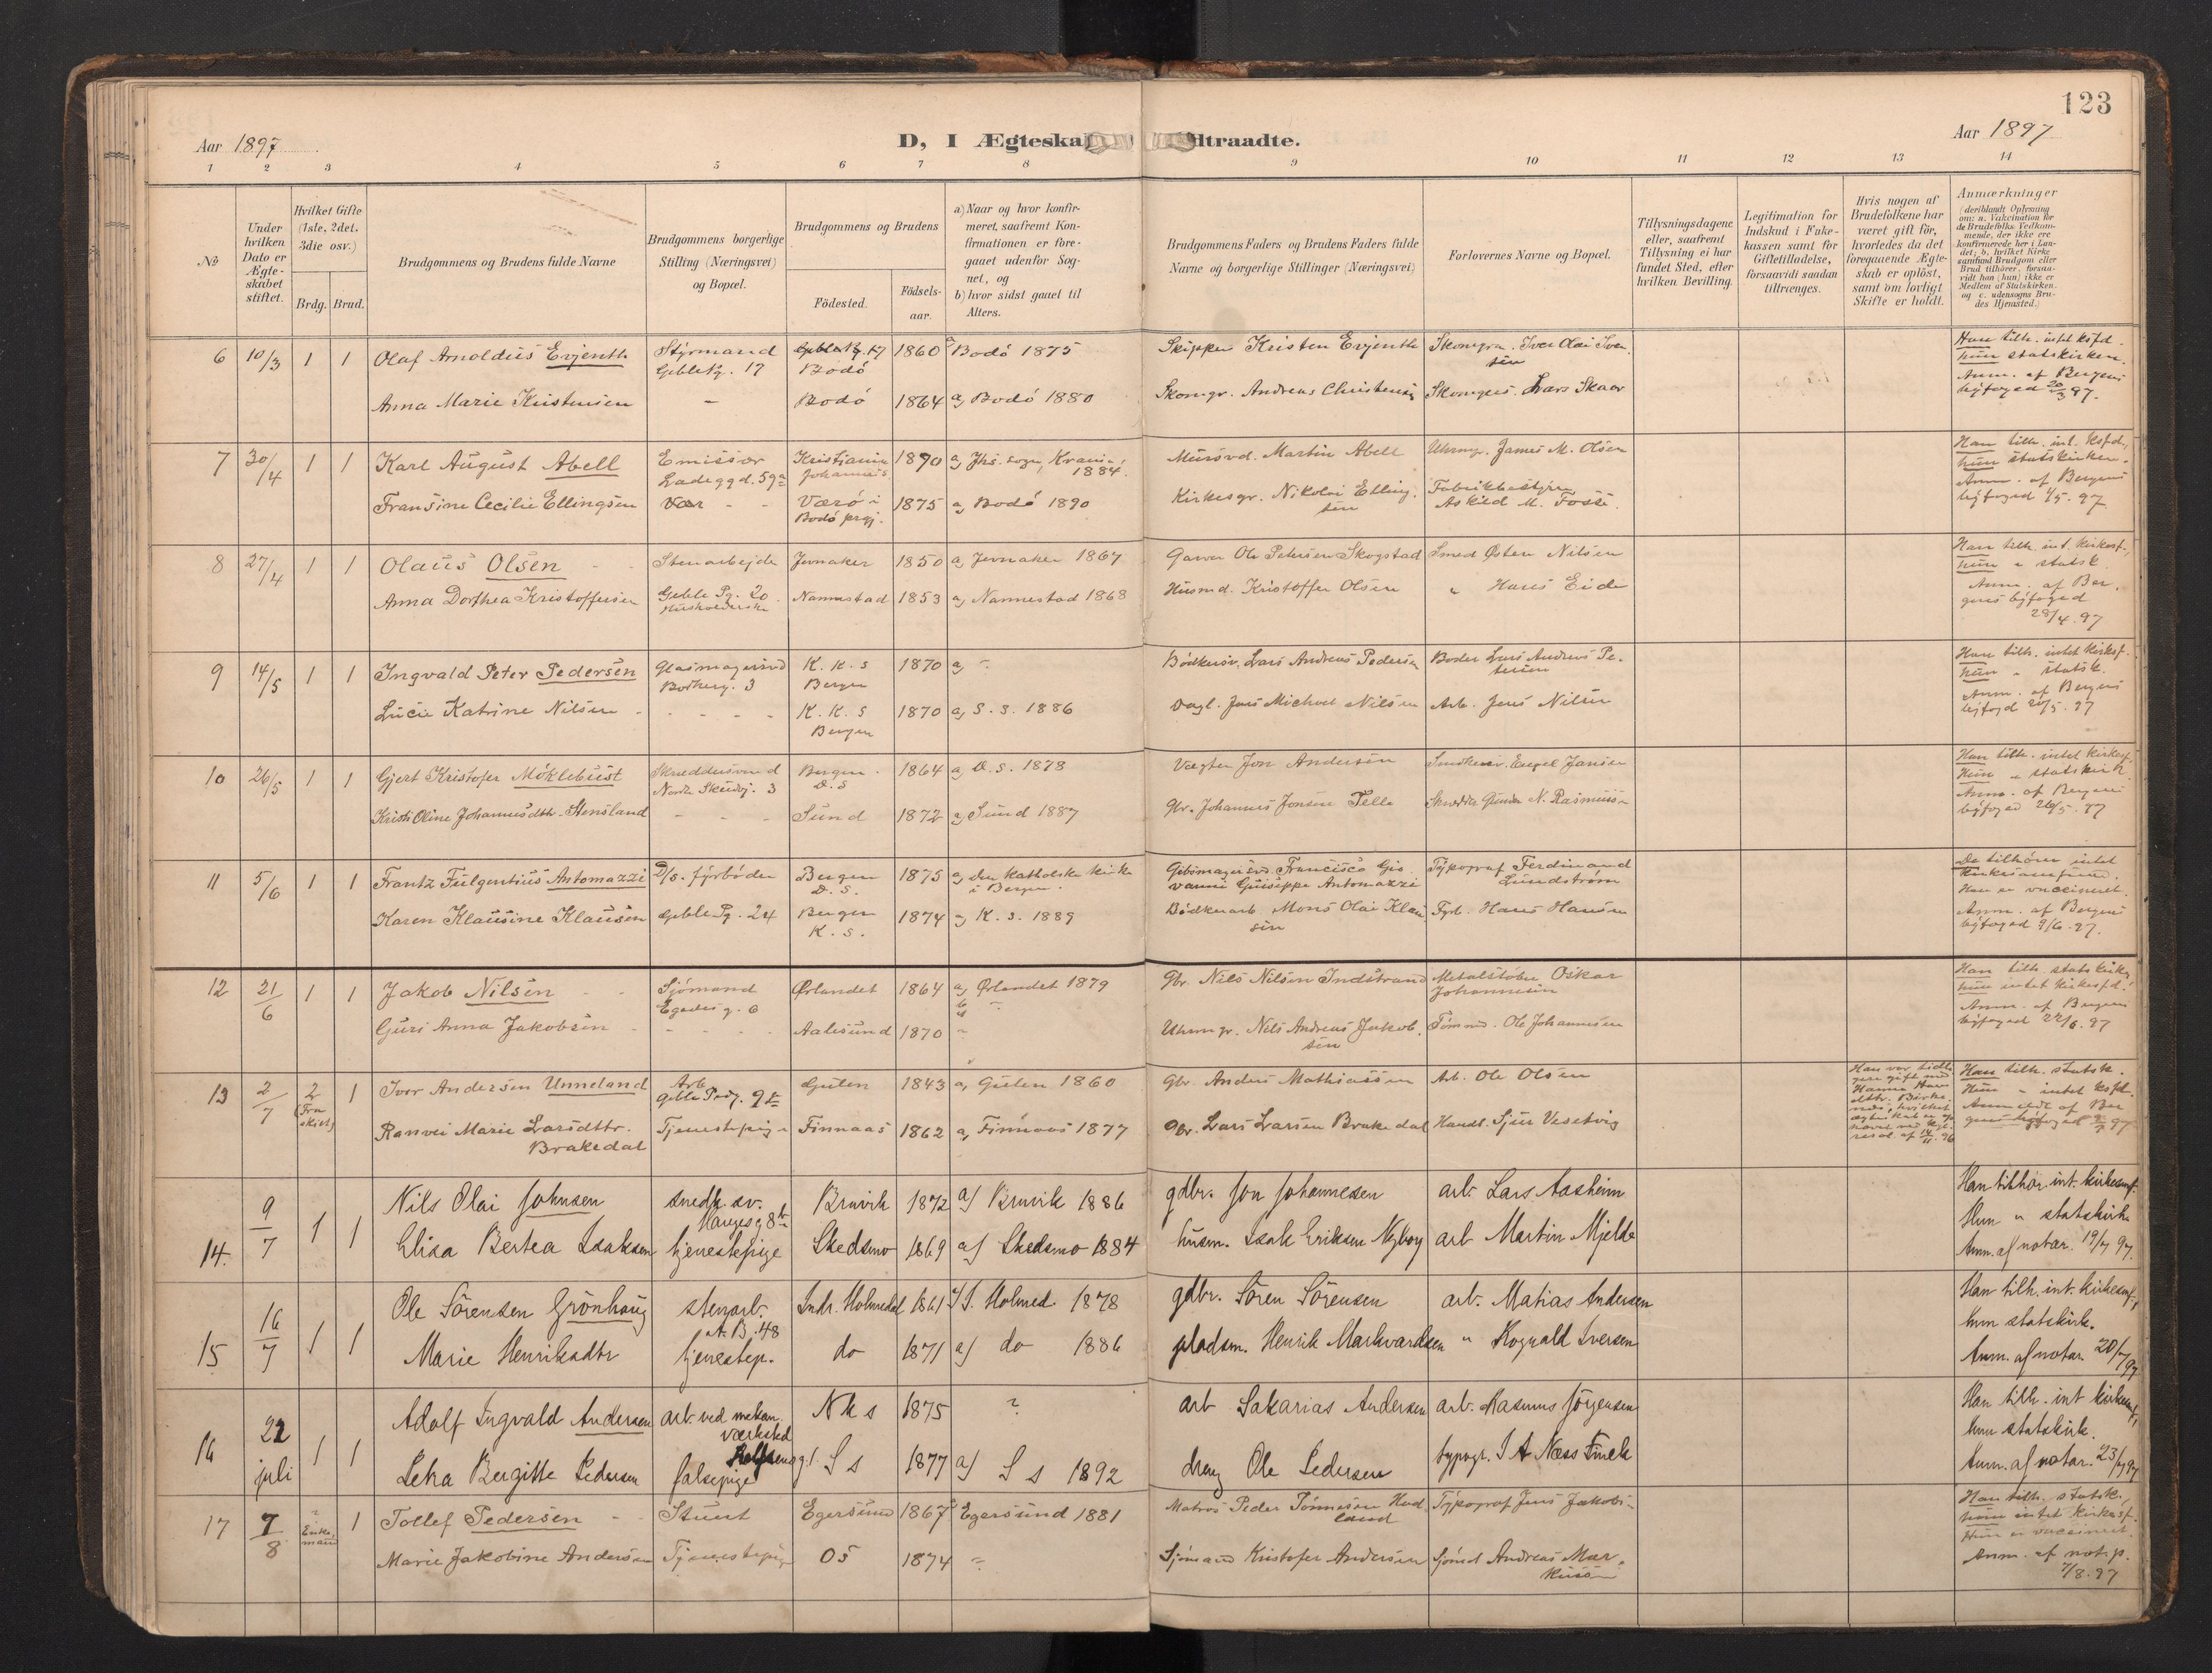 123
Aar 1897
D, I Ægteska
dtraadte.
Aar 1897
1 2 3 4 5 6 7 8 9 10 11 12 13 14
№
Under hvilken Dato er Ægteskabet stiftet.
Hvilket Gifte (1ste, 2det, 3die osv.)
Brdg. Brud.
Brudgommens og Brudens fulde Navne
Brudgommens borgerlige Stilling (Næringsvei) og Bopæl.
Brudgommens og Brudens
Fødested.
Fødsels-aar.
a) Naar og hvor konfir-
meret, saafremt Kon-
firmationen er fore-
gaaet udenfor Sog-
net, og
b) hvor sidst gaaet til
Alters.
Brudgommens Faders og Brudens Faders fulde
Navne og borgerlige Stillinger (Næringsvei)
Forlovernes Navne og Bopæl.
Tillysningsdagene
eller, saafremt
Tillysning ei har
fundet Sted, efter
hvilken Bevilling.
Legitimation for
Indskud i Enke-
kassen samt for
Giftetilladelse,
forsaavidt saadan
tiltrænges.
Hvis nogen af
Brudefolkene har
været gift før,
hvorledes da det
foregaaende Ægte-
skab er opløst,
samt om lovligt
Skifte er holdt.
Anmærkninger
(deriblandt Oplysning
om: a. Vakcination for
de Brudefolks Vedkom-
mende, der ikke ere
konfirmerede her i Lan-
det; b. hvilket Kirke
samfund Brudgom eller
Brud tilhører, forsaa-
vidt han (hun) ikke er
Medlem af Statskirken.
og c. udensogns Bru-
des Hjemsted.)
6 10/3 1 1 Olaf Arnoldus Evjenth Styrmand Geblehg. 17 Bodö 1860 a Bodö 1875 Skipper Kristen Evjenth Skomgr. Iver Olai Iversen Han tilh. intet ksfd. hun statskirken. Anm. af Bergens byfoged 20/3 97.
Anna Marie Kristensen - Bodö 1864 a) Bodö 1880 Skomgr. Andreas Christensen Lars Skaar
7 30/4 1 1 Karl August Abell Emissær Ladegg d. 59 Kristiania Johannes 1870 a) Jhs. sogn, Krania, 1884. Mursvd. Martin Abell Uhrmgr. James M. Olsen Han tilh. int. ksfd., hun statskirken. Anm. af Bergens byfoged 1/5. 97
Fransine Cecilie Ellingsen Værö i Bodö prgj. 1875 a) Bodö 1890 Kirkesgr. Nikolai Ellingsen Fabrikbestyrer Askild M. Fosse.
8 27/4 1 1 Olaus Olsen Stenarbejder Jevnaker 1850 a) Jevnaker 1867 Garver Ole Petersen Skogstad Smed Østen Nilsen Han tilh. int. kirkesf., hun " statsk. Anm. af Bergens byfoged 28/4. 97
Anna Dorthea Kristoffersen Geble Pg. 20. Husholderske Nannestad 1853 a) Nannestad 1868 Husmd. Kristoffer Olsen " Hans Eide
9 14/5 1 1 Ingvald Peter Pedersen Glasmagersvd 3 K. k. s Bergen 1870 a) - Bödkersv. Lars Andreas Pedersen Lars Andreas Petersen Han tilh. intet kirksf. hun " statsk. Anm. af Bergens byfogd 20/5. 97
Lucie Katrine Nilsen - - - K. K. S Bergen 1870 a) S. s. 1886 Dagl. Jens Michael Nilsen Arb. Jens Nilsen
10 26/5 1 1 Gjert Kristofer Möklebust Skreddersvend Nordr. Skudvj. 3 Bergen D. S 1864 a) D. s. 1878 Vægter Jon Andersen Snedkersv. Engel Jansen Han tilh. intet kirkesf. Hun " statskirk. Anm. af Bergens byfoged 26/5. 97
Kristi Oline Johannesdtr. Stensland - - - Sund 1872 a) Sund 1887 Gbr. Johannes Jonsen Telle Skredder Gunder N. Rasmussen
11 5/6 1 1 Frantz Fulgentius Antomazzi D/S. fyrböder Bergen D. S. 1875 a) Den katholske kirke i Bergen. Gibsmagersvd. Francisco Giovanni Guiseppe Antomazzi Typograf Ferdinand Lundström De tilhörer intet kirkesamfund. Han er vaccineret. Anm. af Bergens byfoged 9/6. 97.
Karen Klausine Klausen Geble Pg. 24 Bergen K. s. 1874 a) K. s. 1889 Bödkerarb. Mons Olai Klausen Fyrb. Hans Hansen
12 21/6 1 1 Jakob Nilsen Sjömand Egedes g. 6 Ørlandet 1864 a) Ørlandet 1879 Gbr. Nils Nilsen Indstrand Metalstöber Oskar Johannesen Han tilh. statskirke, hun intet kirkesfd. Anm. af Bergens byfoged 22/6. 97
Guri Anna Jakobsen - - - Aalesund 1870 - Uhrmgr. Nils Andreas Jakobsen Tömmd. Ole Johannesen
13 2/7 2 (Fraskilt) 1 Iver Andersen Unneland Arb. Geble Pedg. 9 Gulen 1843 a) Gulen 1860 Gbr. Anders Mathiassen Arb. Ole Olsen Han tilh. statsk. Hun " intet ksfd. Anmeldt af Bergens byfoged 2/7 97
Ranvei Marie Larsdttr. Brakedal Tjenestepige Finnaas 1862 a) Finnaas 1877 Gbr. Lars Larsen Brakedal Handl. Sjur Vesetvig
14. 9/7 1 1 Nils Olai Johnsen snedk. sv. Hauges g 8 Bruvik 1872 a) Bruvik 1886 gdbr. Jon Johannesen arb. Lars Aasheim Han tilhör int. kirkesamf. Hun " statskirk. Anm. af notar. 19/7 97.
Elisa Bertea Isaksen tjenestepige Skedsmo 1869 a) Skedsmo 1884 husm. Isak Eriksen Nyborg arb Martin Mjelde
15 16/7 1 1 Ole Sörensen Grönhaug stenarb. A. B. 48 Indr. Holmedal 1861 I. Holmed. 1878 gdbr. Sören Sörensen arb. Matias Andersen Han tilh. int. kirkesamf., hun statskirk. Anm. af notar. 20/7 97
Marie Henriksdtr tjenestep. do 1871 a) do 1886 pladsm. Henrik Markvardsen " Rognald Iversen
16 22 juli 1 1 Adolf Ingvald Andersen arb. ved mekan. værksted N k s 1875 ? arb Sakarias Andersen arb. Rasmus Jörgensen Han tilh. int kirkesamf, hun statskirk. Anm. af notar. 23/7 97
Lena Bergitte Pedersen falsepige S s 1877 a) S s 1892 dreng Ole Pedersen typogr. I A Næss Finck
17 7/8 Enkemand 1 Tollef Pedersen Stuert Egersund 1867 a Egersund 1881 Matros Peder Tönnesen Hadland Typograf Jens Jakobsen Han tilh. statsk, hun intet kirkesf. Hun er vaccineret. Anm. af not. p. 7/8. 97
Marie Jakobine Andersen Tjenestepige Os 1874 - Sjömand Kristofer Andersen Sjömd Andreas Markusen